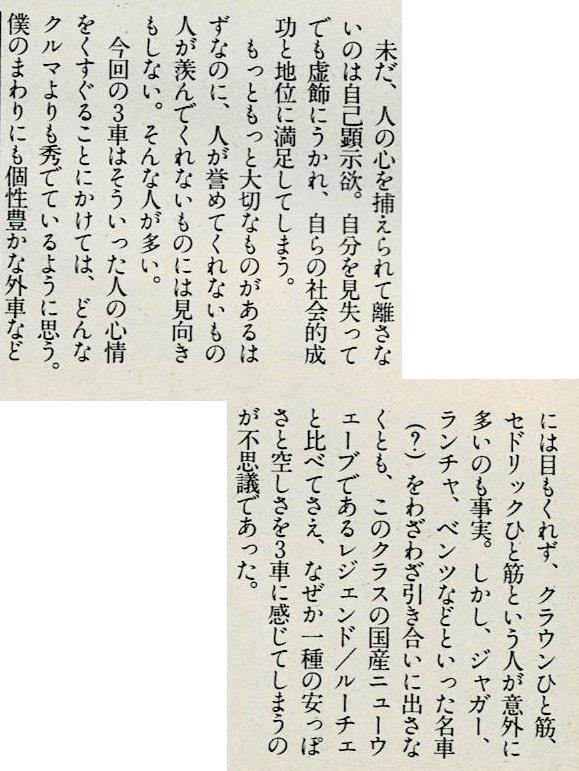 未だ、人の心を捕えられて離さな
いのは自己顕示欲。自分を見失って
でも虚飾にうかれ、自らの社会的成
功と地位に満足してしまう。
もっともっと大切なものがあるは
ずなのに、人が誉めてくれないもの
人が羨んでくれないものには見向き
もしない。そんな人が多い。
今回の3車はそういった人の心情
をくすぐることにかけては、どんな
クルマよりも秀でているように思う。
僕のまわりにも個性豊かな外車など
には目もくれず、クラウンひと筋、
セドリックひと筋という人が意外に
多いのも事実。しかし、ジャガー、
ランチャ、ベンツなどといった名車
(?)をわざわざ引き合いに出さな
くとも、このクラスの国産ニューウ
ェーブであるレジェンド／ルーチェ
と比べてさえ、なぜか一種の安っぽ
さと空しさを3車に感じてしまうの
が不思議であった。